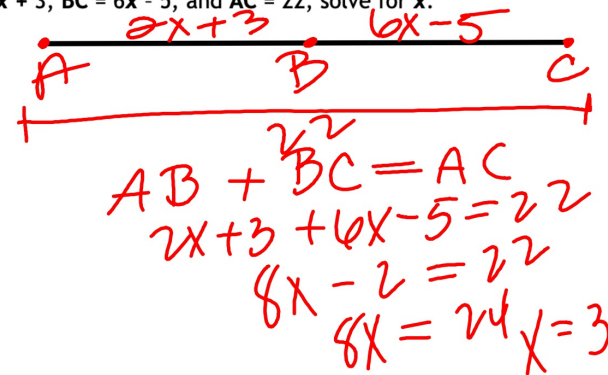 x + 3, BC = 6x - 5, and AC = 22, solve for x.
2x+3 6x-5
A B C
22
AB + BC = AC
2x+3 +6x-5=22
8x - 2 = 22
8x = 24 x=3